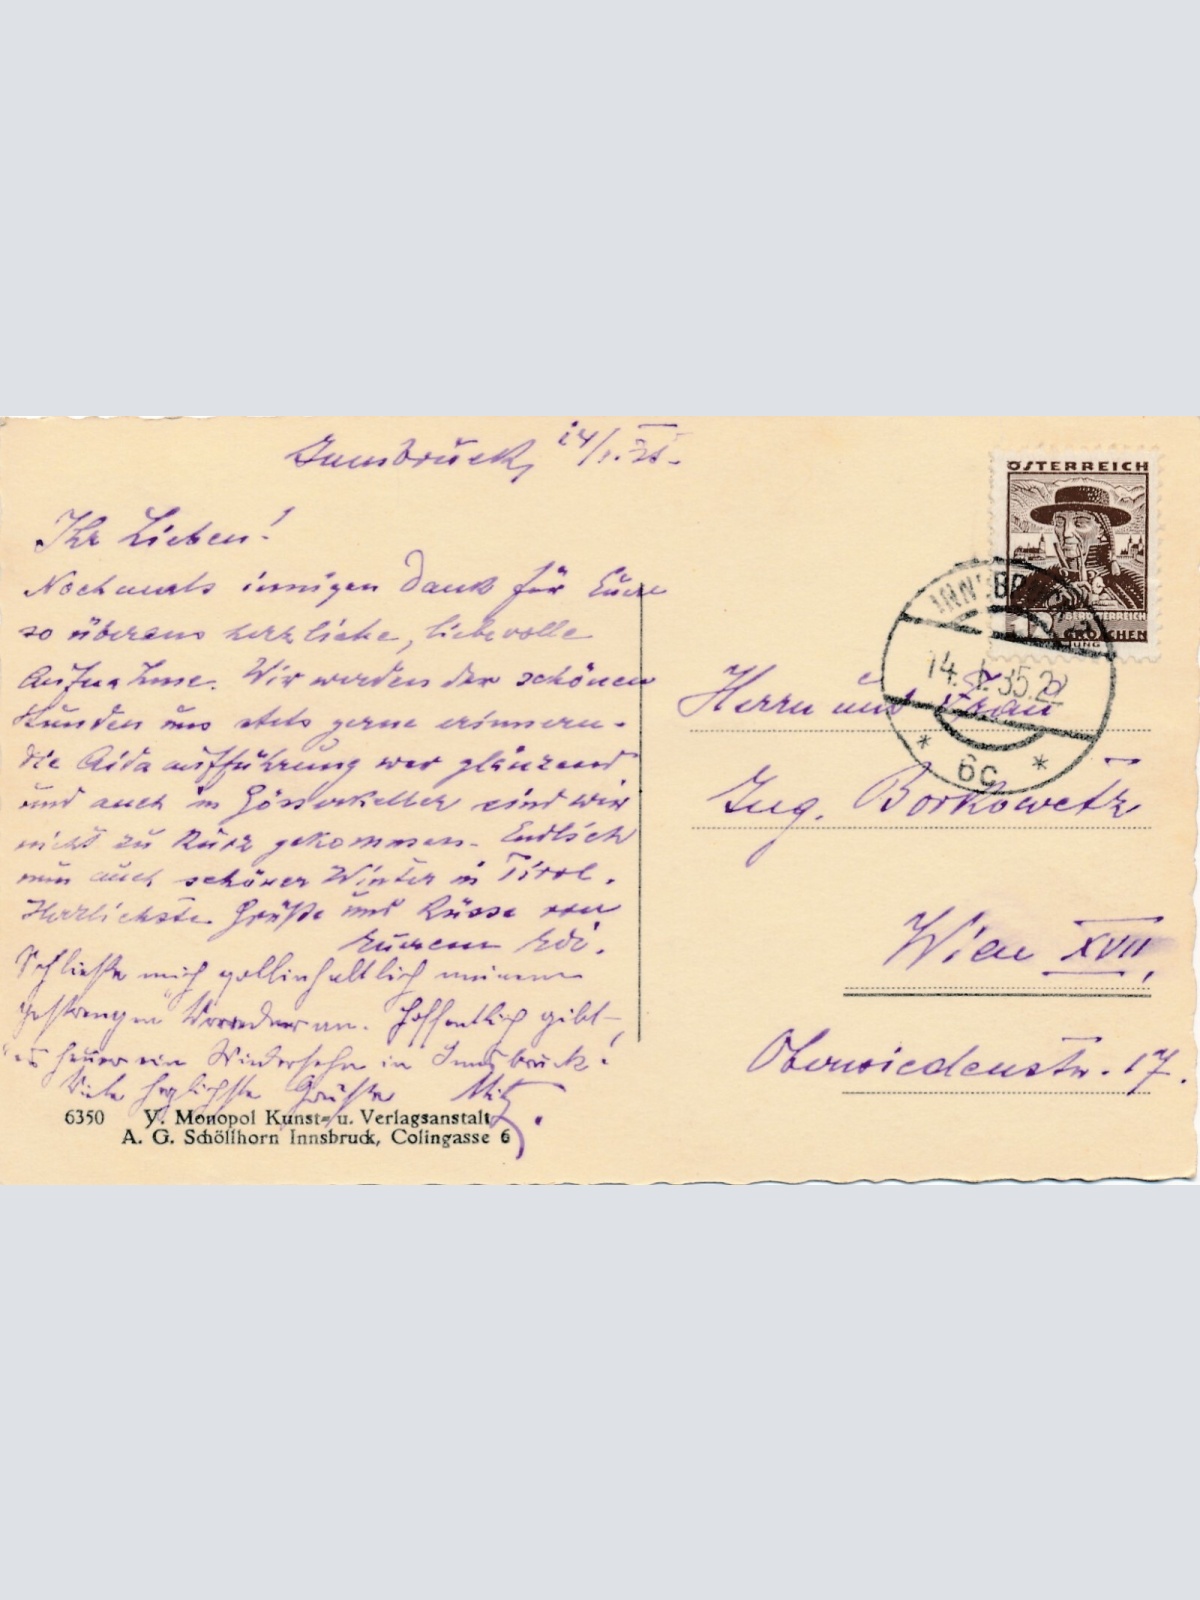 Innsbruck, 14/1. 35.
Ihr Lieben!
Nochmals innigen Dank für Eure
so überaus herzliche, liebevolle
Aufnahme. Wir werden der schönen
Stunden uns stets gerne erinnern.
Die Aida aufführung war glänzend
und auch im Gösserkeller sind wir
nicht zu kurz gekommen. Endlich
nun auch schöner Winter in Tirol.
Herzlichste Grüße und Küsse von
Eurem Edi.
Schließe mich vollinhaltlich meinem
gestrengen Vorredner an. Hoffentlich gibt
es heuer ein Wiedersehn in Innsbruck!
Viele herzlichste Grüße
6350 V. Monopol Kunst- u. Verlagsanstalt
A. G. Schöllhorn Innsbruck, Colingasse 6
ÖSTERREICH
12 GROSCHEN
INNSBRUCK
14. I. 35. 22
* 6c *
Herrn und Frau
Ing. Borkowetz
Wien XVII,
Oberwiedenstr. 17.